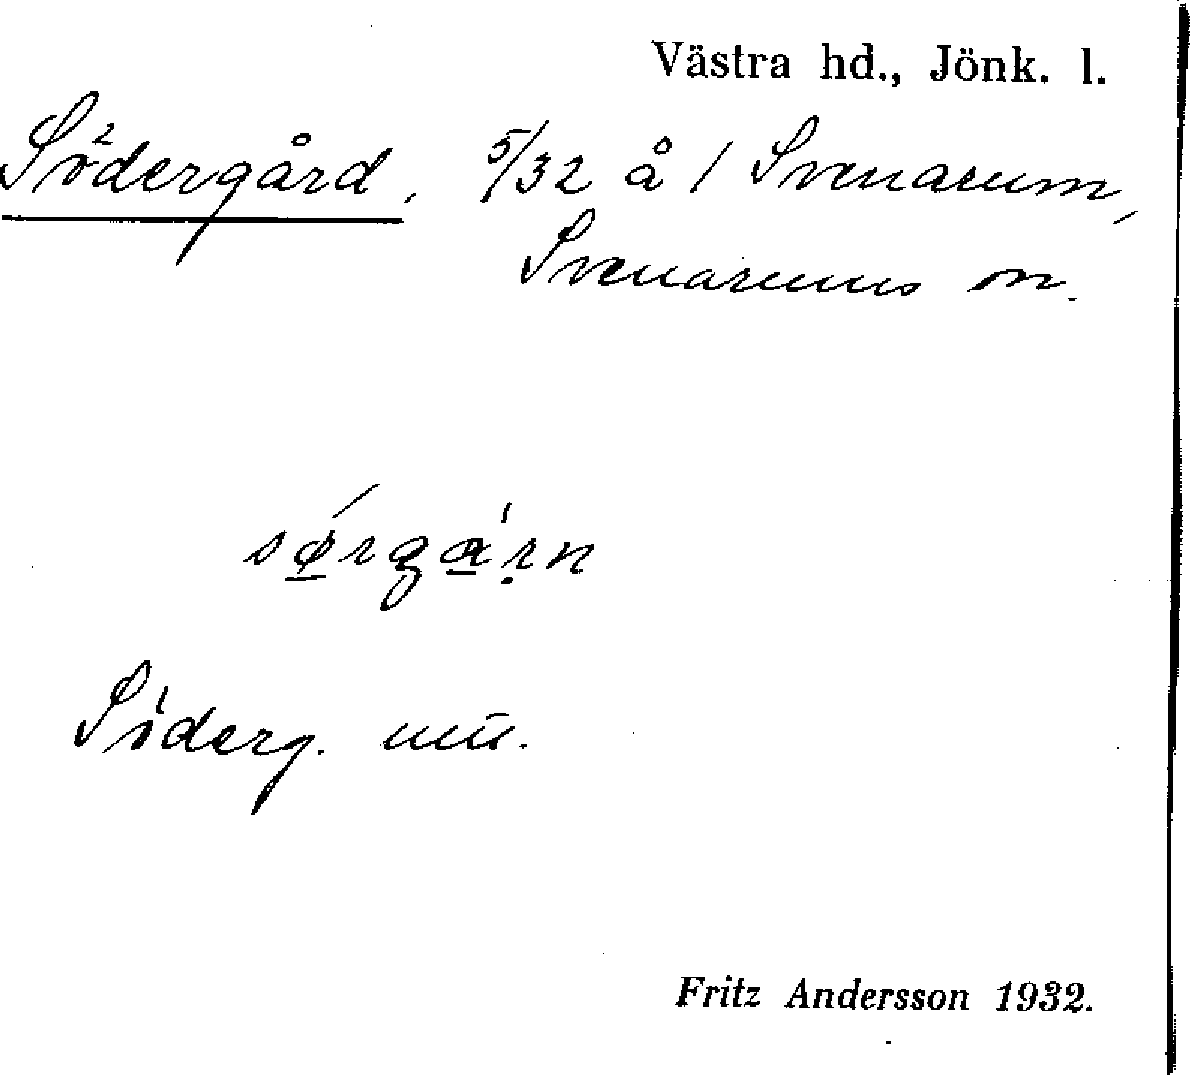 Västra hd., Jönk. l.
Södergård, 5/32 å 1 Svenarum,
Svenarums sn.
Söderg. uu.
Fritz Andersson 1932.